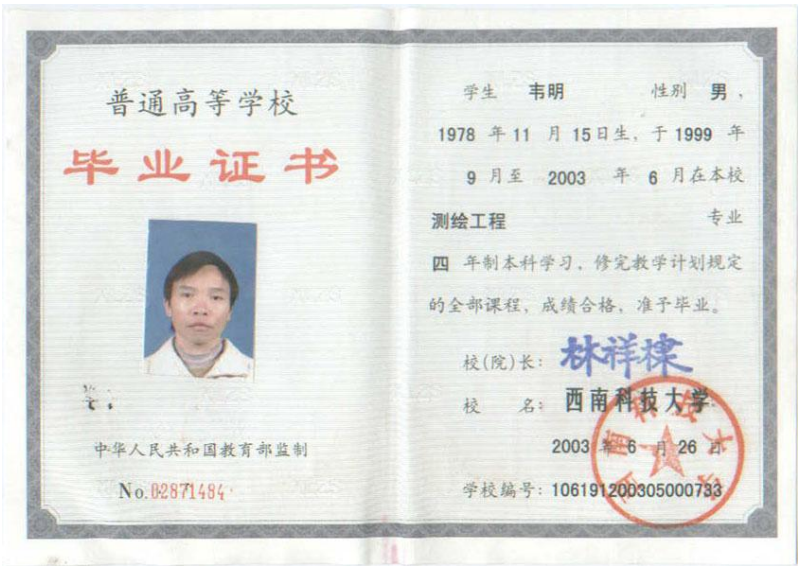 普通高等学校
毕业证书
中华人民共和国教育部监制
No.02871484
学生 韦明 性别 男、
1978 年 11 月 15日生，于 1999 年
9 月至 2003 年 6 月在本校
测绘工程 专业
四 年制本科学习，修完教学计划规定
的全部课程，成绩合格，准予毕业。
校(院)长： 林祥棣
校 名： 西南科技大学
2003 年 6 月 26 日
学校编号：106191200305000733
西南科技大学